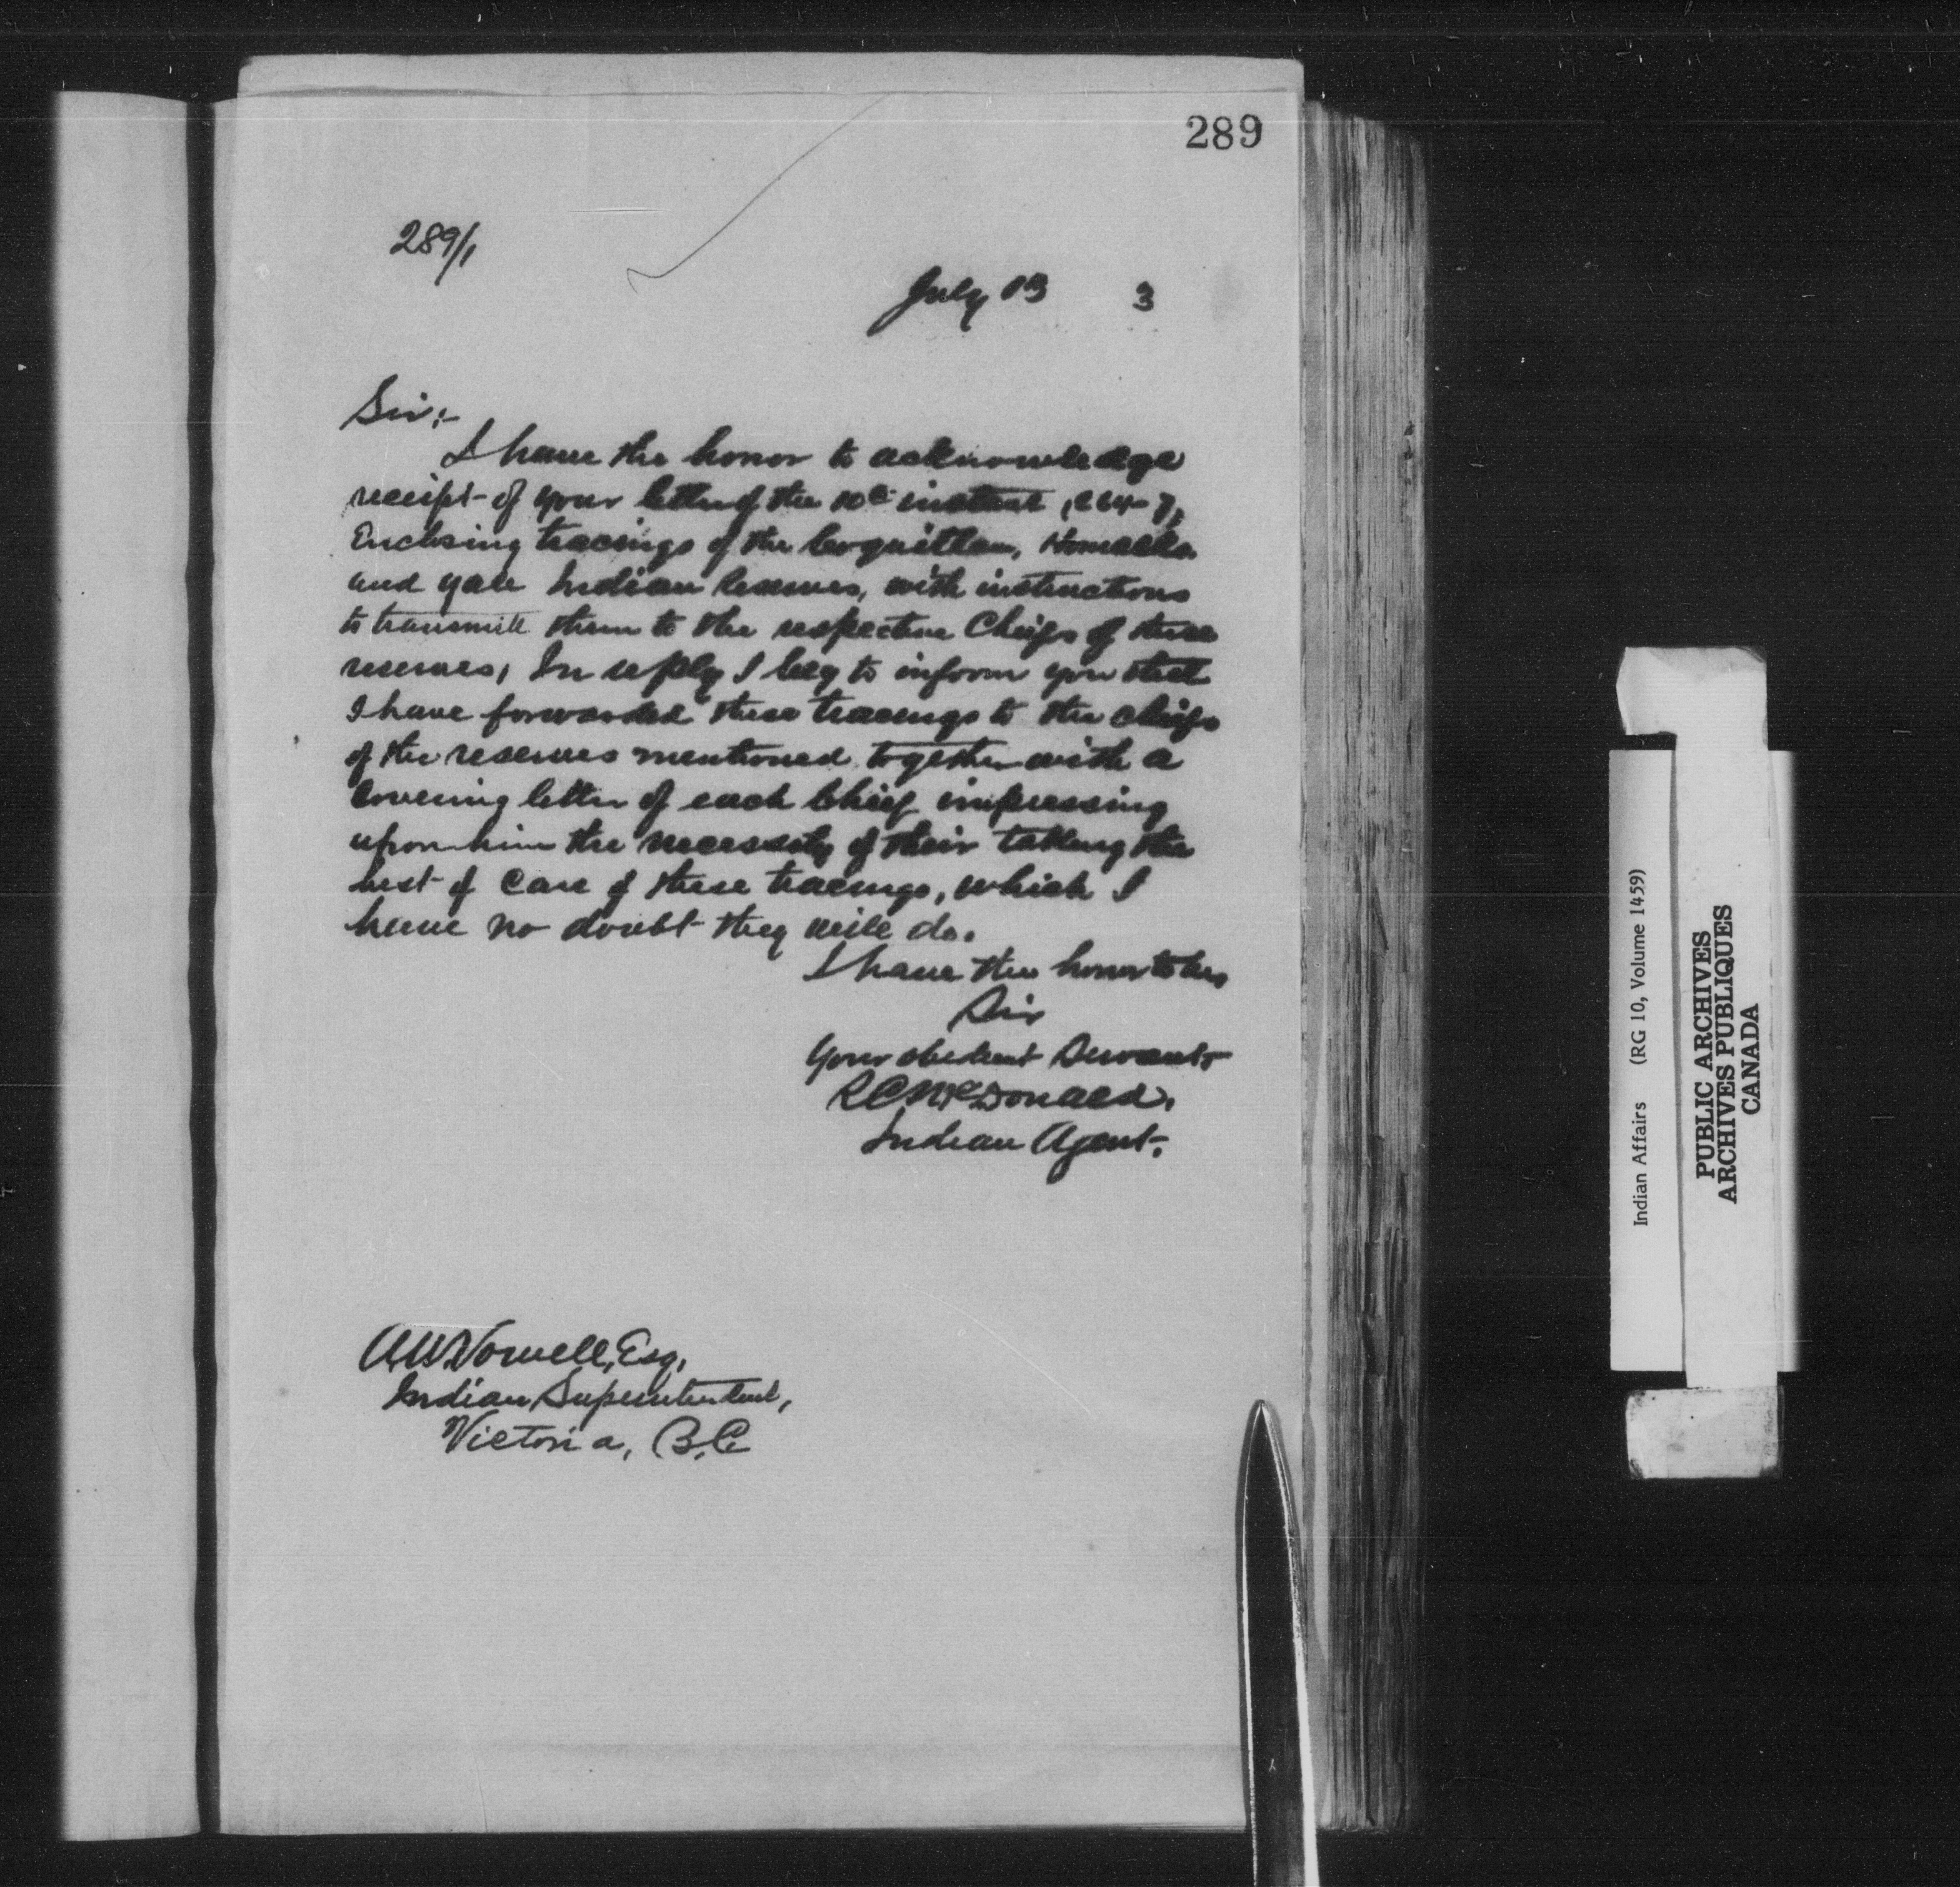 289
289/1
July 13 3
Sir:-
I have the honor to acknowledge
receipt of your letter of the 10th instant (264-7),
Enclosing tracings of the Coquitlam, Homalko
and Yale Indian Reserves, with instructions
to transmitt them to the respective Chiefs of these
reserves, In reply I beg to inform you that
I have forwarded these tracings to the chiefs
of the reserves mentioned together with a
Covering letter of each Chief impressing
upon him the necessity of their taking the
best of Care of these tracings, which I
have no doubt they will do.
I have the honor to be,
Sir
Your obedient Servant
R C McDonald,
Indian Agent.
A.W. Vowell, Esq,
Indian Superintendent,
Victoria, B.C.
Indian Affairs (RG 10, Volume 1459)
PUBLIC ARCHIVES
ARCHIVES PUBLIQUES
CANADA